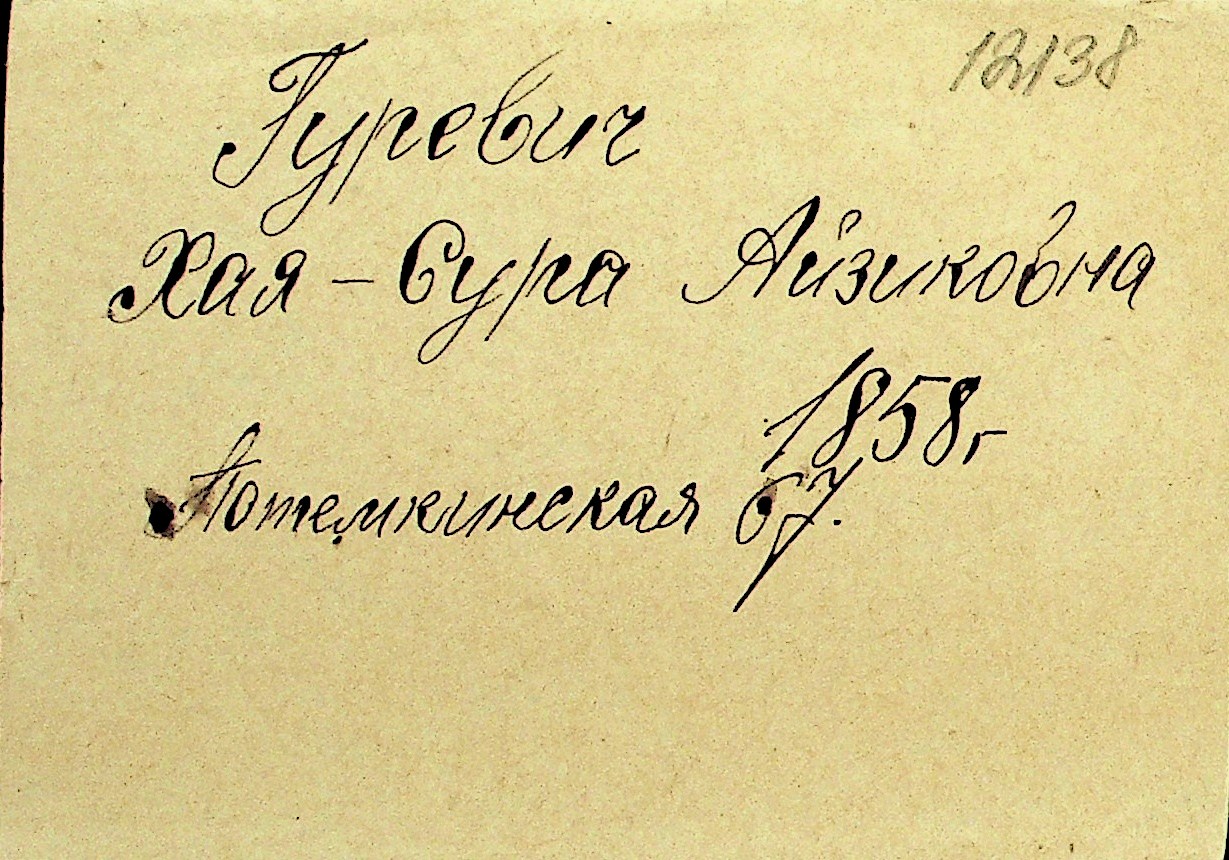 12138
Гуревич
Хая - Сура Айзиковна
1858 г
Потемкинская 67.